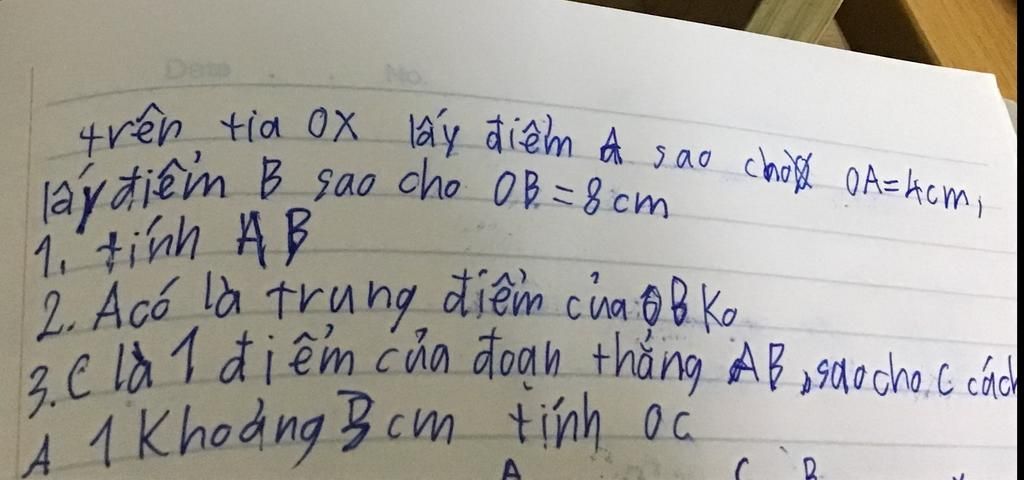 Date No.
trên tia OX lấy điểm A sao cho OA=4cm,
lấy điểm B sao cho OB=8cm
1. tính AB
2. A có là trung điểm của OB Ko
3. C là 1 điểm của đoạn thẳng AB, sao cho C cách
A 1 Khoảng 3 cm tính OC
A C B x